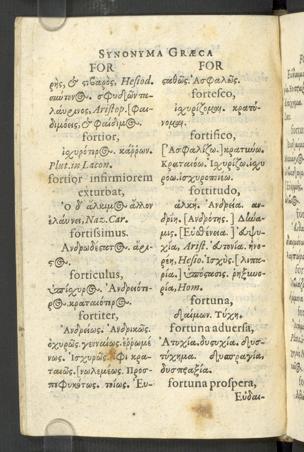 SYNONYMA GRÆCA
FOR
ρὴς, & στιβαρὸς. Hesiod.
Aristop. [Φαι-
διμόεις, & Φαίδιμος.
fortior,
ἰσχυρότερος. κάρρων.
Plut. in Lacon.
fortior infirmiorem
exturbat,
Ὁ δ' ἄλκιμος ἄλλον
ἐλαύνει. Naz. Car.
fortissimus.
ἀρι-
στος.
forticulus,
Ἀνδρειότε-
ρος. κραταιότερος.
fortiter,
Ἀνδρείως. Ἀνδρικῶς.
ὀχυρῶς. γενναίως. ἐῤῥωμέ
νως. Ἰσχυρῶς. Ἶφι κρα-
ταιῶς. [νωλεμέως. Προσ-
πεφυκότως. Εὐ-
FOR
σαθῶς. Ἀσφαλῶς.
fortesco,
ἰσχυρίζομαι. κρατύ-
νομαι.
fortifico,
[Ἀσφαλίζω.] κρατύνω.
Κραταιόω. Ἰσχυρίζω. ἰσχυ
ρόω.
fortitudo,
ἀλκὴ. Ἀνδρεία. ἀν-
δρίη. [Ἀνδρότης.] Δύνα-
μις. [Εὐσθένεια.]
Arist. εὐτονία. ἠνο-
ρέη, Hesio. Ἰσχὺς. [λιπα-
ρία.] ὑπόστασις. ῥηξηνο-
ρία, Hom.
fortuna,
δαίμων. Τύχη.
fortuna adversa,
Ἀτυχία. δυσυχία. δυσ-
τύχημα. δυσπραγία,
δυσπραξία.
fortuna prospera,
Εὐδαι-